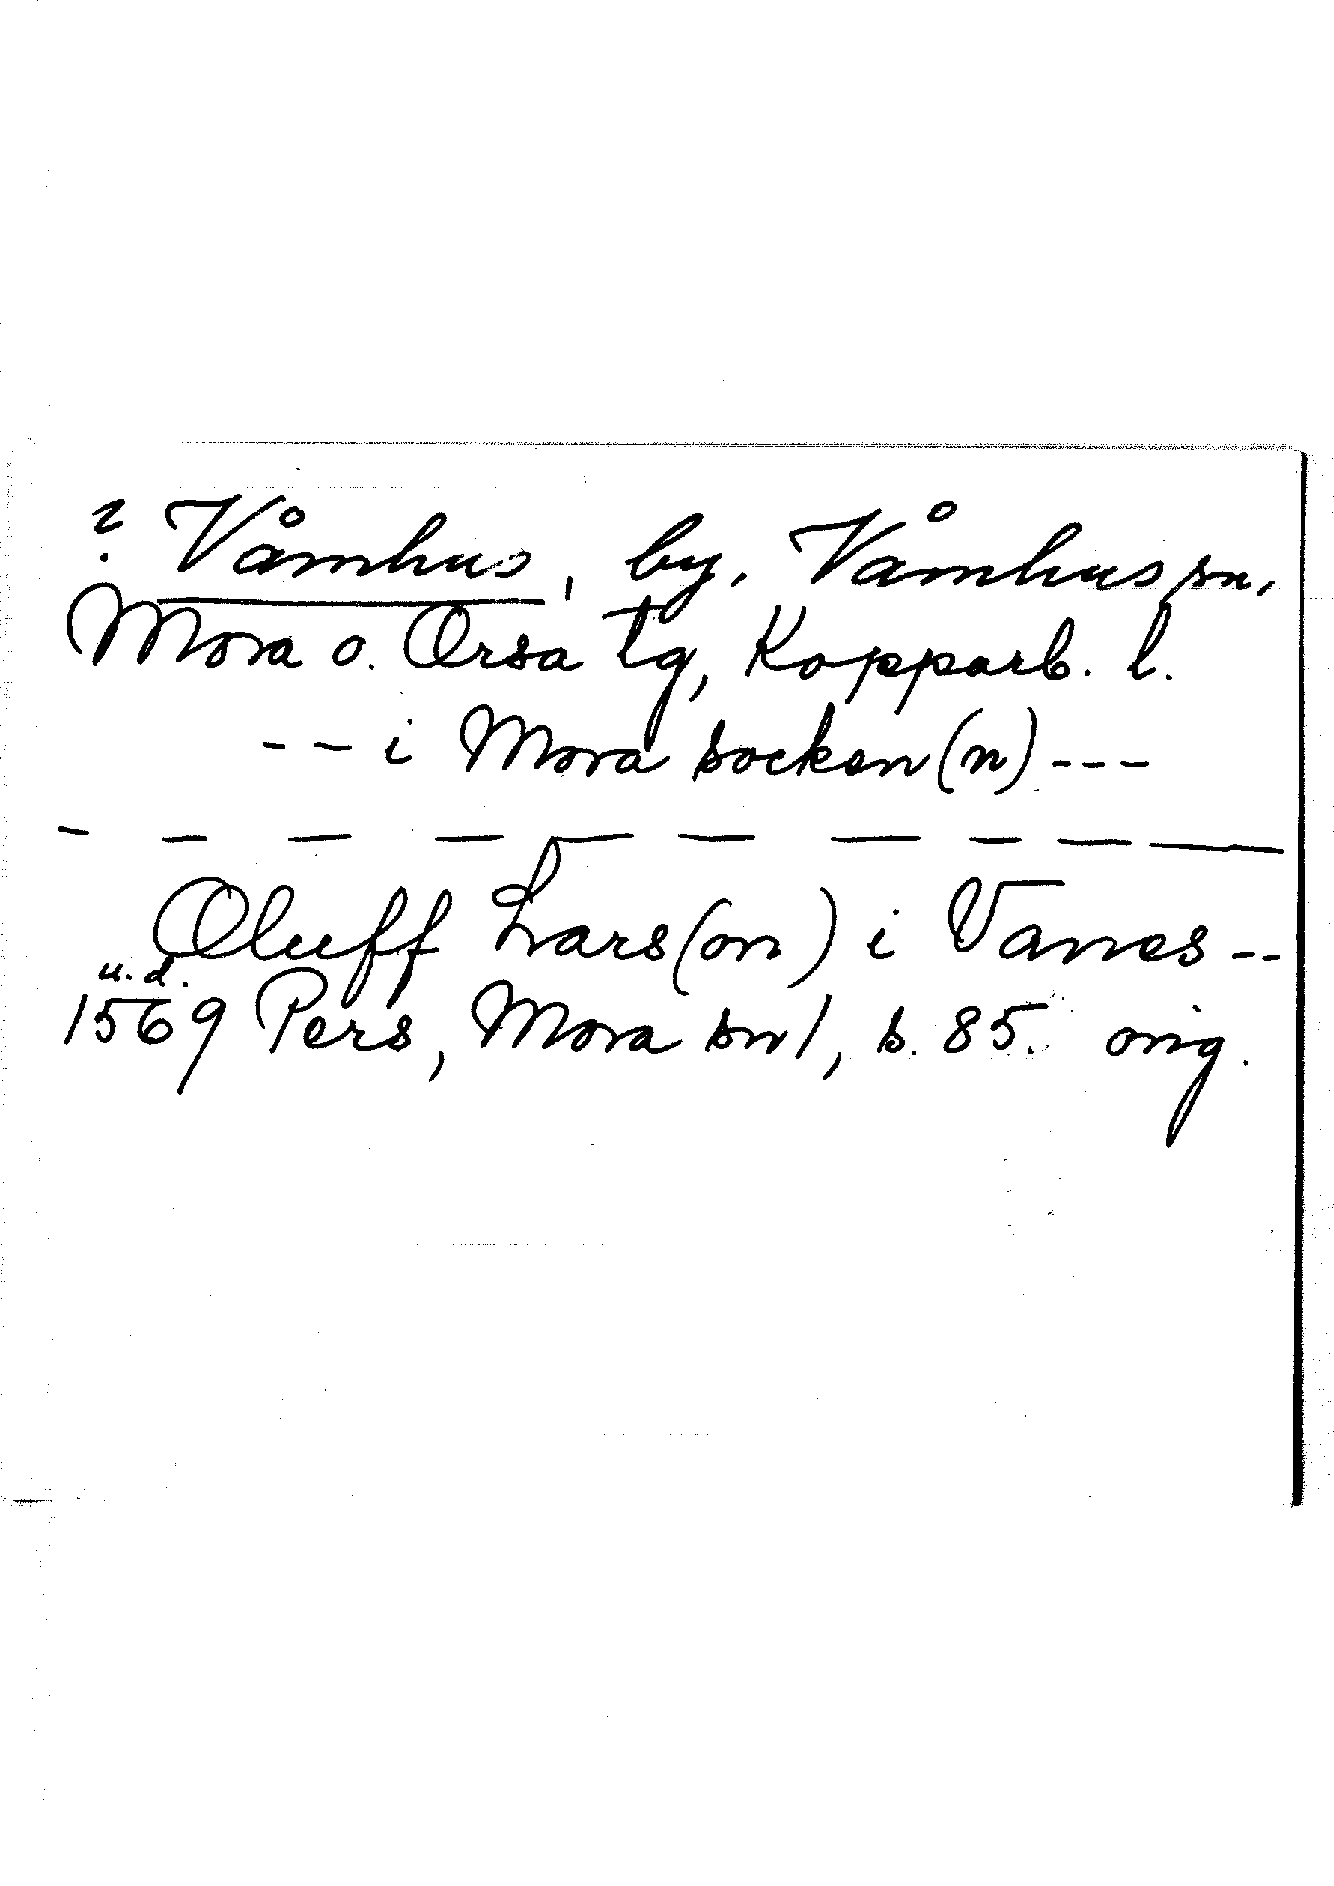 ? Våmhus, by, Våmhus sn,
Mora o. Orsa tg, Kopparb. l.
-- i Mora socken(n) ---
— — — — — — — — — —
Oluff Lars(on) i Vanes --
u. d.
1569 Pers, Mora sn 1, s. 85. orig.